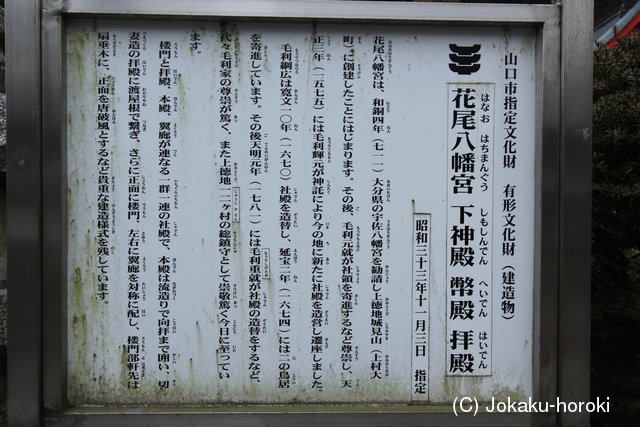 山口市指定文化財　有形文化財（建造物）
花尾八幡宮　下神殿　幣殿　拝殿
はなお　はちまんぐう　しもしんでん　へいでん　はいでん
昭和三十三年十一月三日　指定
花尾八幡宮は、和銅四年（七一一）大分県の宇佐八幡宮を勧請し上徳地城見山（上村大
町）に創建したことにはじまります。その後、毛利元就が社領を寄進するなど尊崇し、天
正三年（一五七五）には毛利輝元が神託により今の地に新たに社殿を造営し遷座しました。
毛利綱広は寛文一〇年（一六七〇）社殿を造替し、延宝二年（一六七四）には二の鳥居
を寄進しています。その後天明元年（一七八一）には毛利重就が社殿の造替をするなど、
代々毛利家の尊崇が篤く、また上徳地二ヶ村の総鎮守として崇敬篤く今日に至ってい
ます。
楼門と拝殿、本殿、翼廊が連なる一群一連の社殿で、本殿は流造りで向拝まで囲い、切
妻造の拝殿に渡屋根で繋ぎ、さらに正面に楼門、左右に翼廊を対称に配し、楼門部軒先は
扇垂木に、正面を唐破風とするなど貴重な建造様式を残しています。
(C) Jokaku-horoki